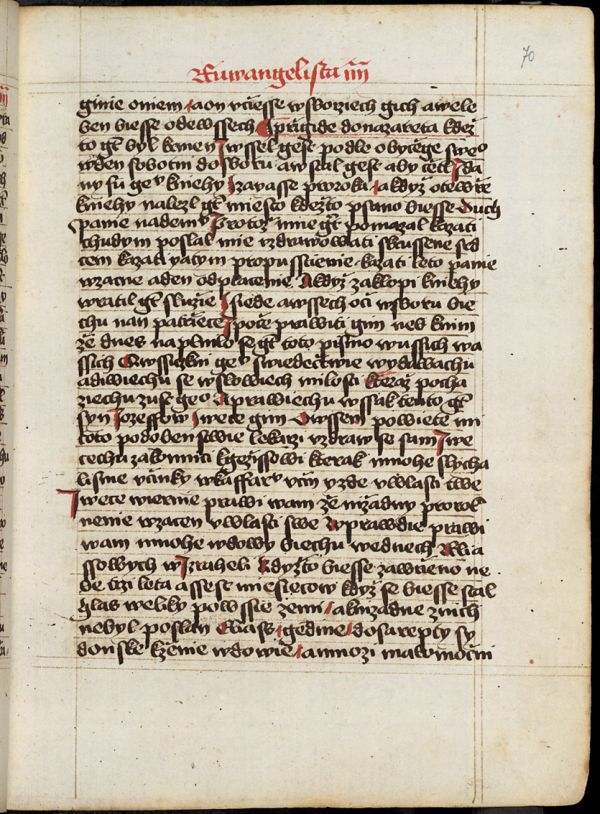 70
Euwangelista iiii
ginie o niem / a on vcziesse w sborziech gich a wele
ben biesse ode wssech I przigide do nazareta kdež
to gt byl krmen I wssel gest podle obyczege sweo
w den sobotni do sboru a wstal gest aby cetl I da
ny su geu knihy Izayasse proroka a kdyz otewrze
knihy nalezl gt miesto kdezto psano biesse Duch
panie nademu Protoz mie gt pomazal kazati
chudym poslal mie vzdrawowati skrussene srd
cem kazati yatym propusstienie kazati leto panie
wzacne a den odplacenie A kdyz zaklopi knihy
wratil gt sluzie I siede a wssech oci w sboru bie
chu nan patrziece I pocze prawiti gim neb k nim
ze dnes naplnilo se gt toto pismo w ussich wa
ssich A wssickni geu swiedectwie wydawachu
a diwiechu se w slowiech milosti kteraz pocha
ziechu z ust geo A prawiechu wssak tento gt
syn Jozeffow I wece gim Owssem powiete mi
toto podobenstwie lekarzi vzdraw se sam I we
cechu zakonnici k geżissowi kterak mnohe slycha
lismy vczinky w kaffarn vczin y zde v wlasti twe
I wece wiernie prawi wam ze nizadny prorok
nenie wzacen v wlasti swe A prawdie prawi
wam mnohe wdowy biechu we dnech Elia
ssowych w Izraheli Kdyzto biesse zawrzieno ne
be trzi leta a ssest miesiecow kdyz se biesse stal
hlas weliky po wssie zemi / a k nizadne z nich
nebyl poslan Eliass / gedine / do sarepty sy
donske k zenie wdowie / a mnozi malomocni